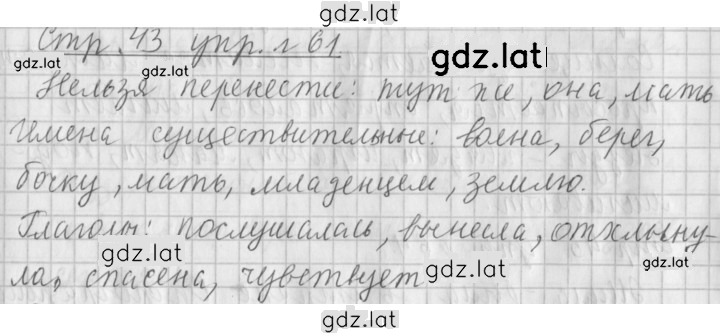 gdz.lat
Стр. 43 упр. г 61
gdz.lat
gdz.lat
Нельзя перенести: тут же, она, мать
Имена существительные: волна, берег,
бочку, мать, младенцем, землю.
Глаголы: послушалась, вынесла, отхлыну-
gdz.lat
gdz.lat
ла, спасена, чувствует
gdz.lat
gdz.lat
gdz.lat